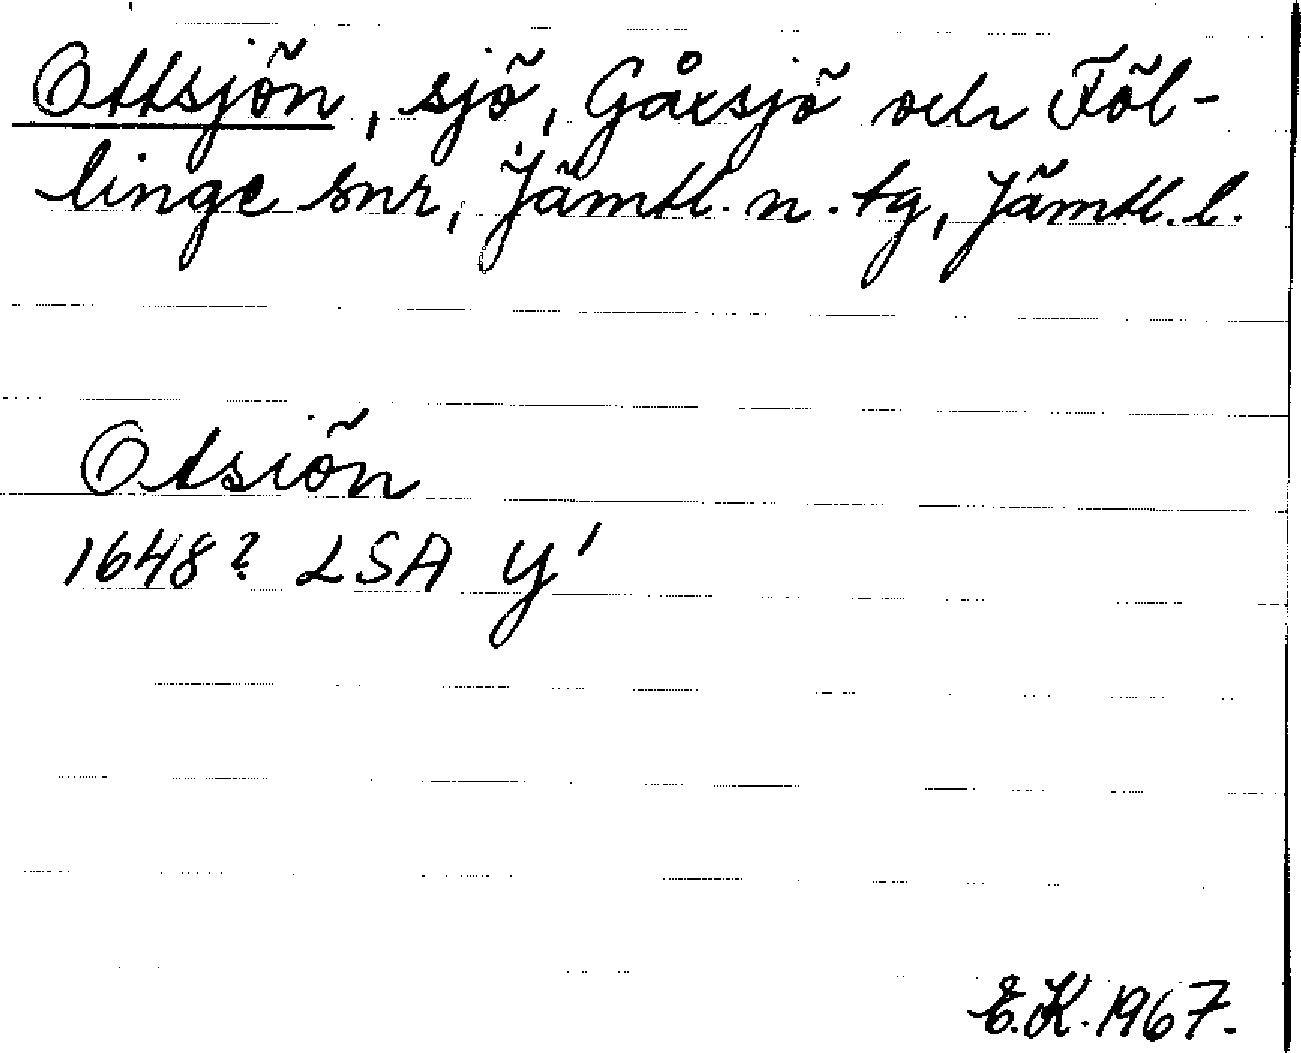 Ottsjön, sjö, Gåxsjö och Föl-
linge snr, Jämtl. n. tg, Jämtl. l.
Otsiön
1648? LSA Y'
E.K. 1967.